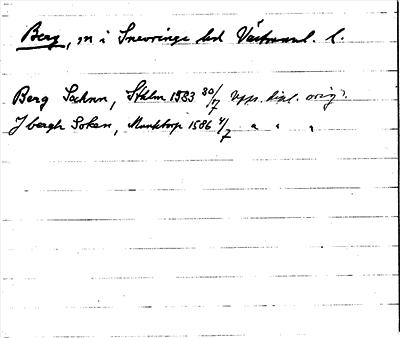 Berg, sn i Snevringe hd Västmanl. l.
Berg Sochnn, Sthlm 1583 30/7 Upps. dipl. orig.
J bergh Soken, Munktorp 1586 4/7 " " "